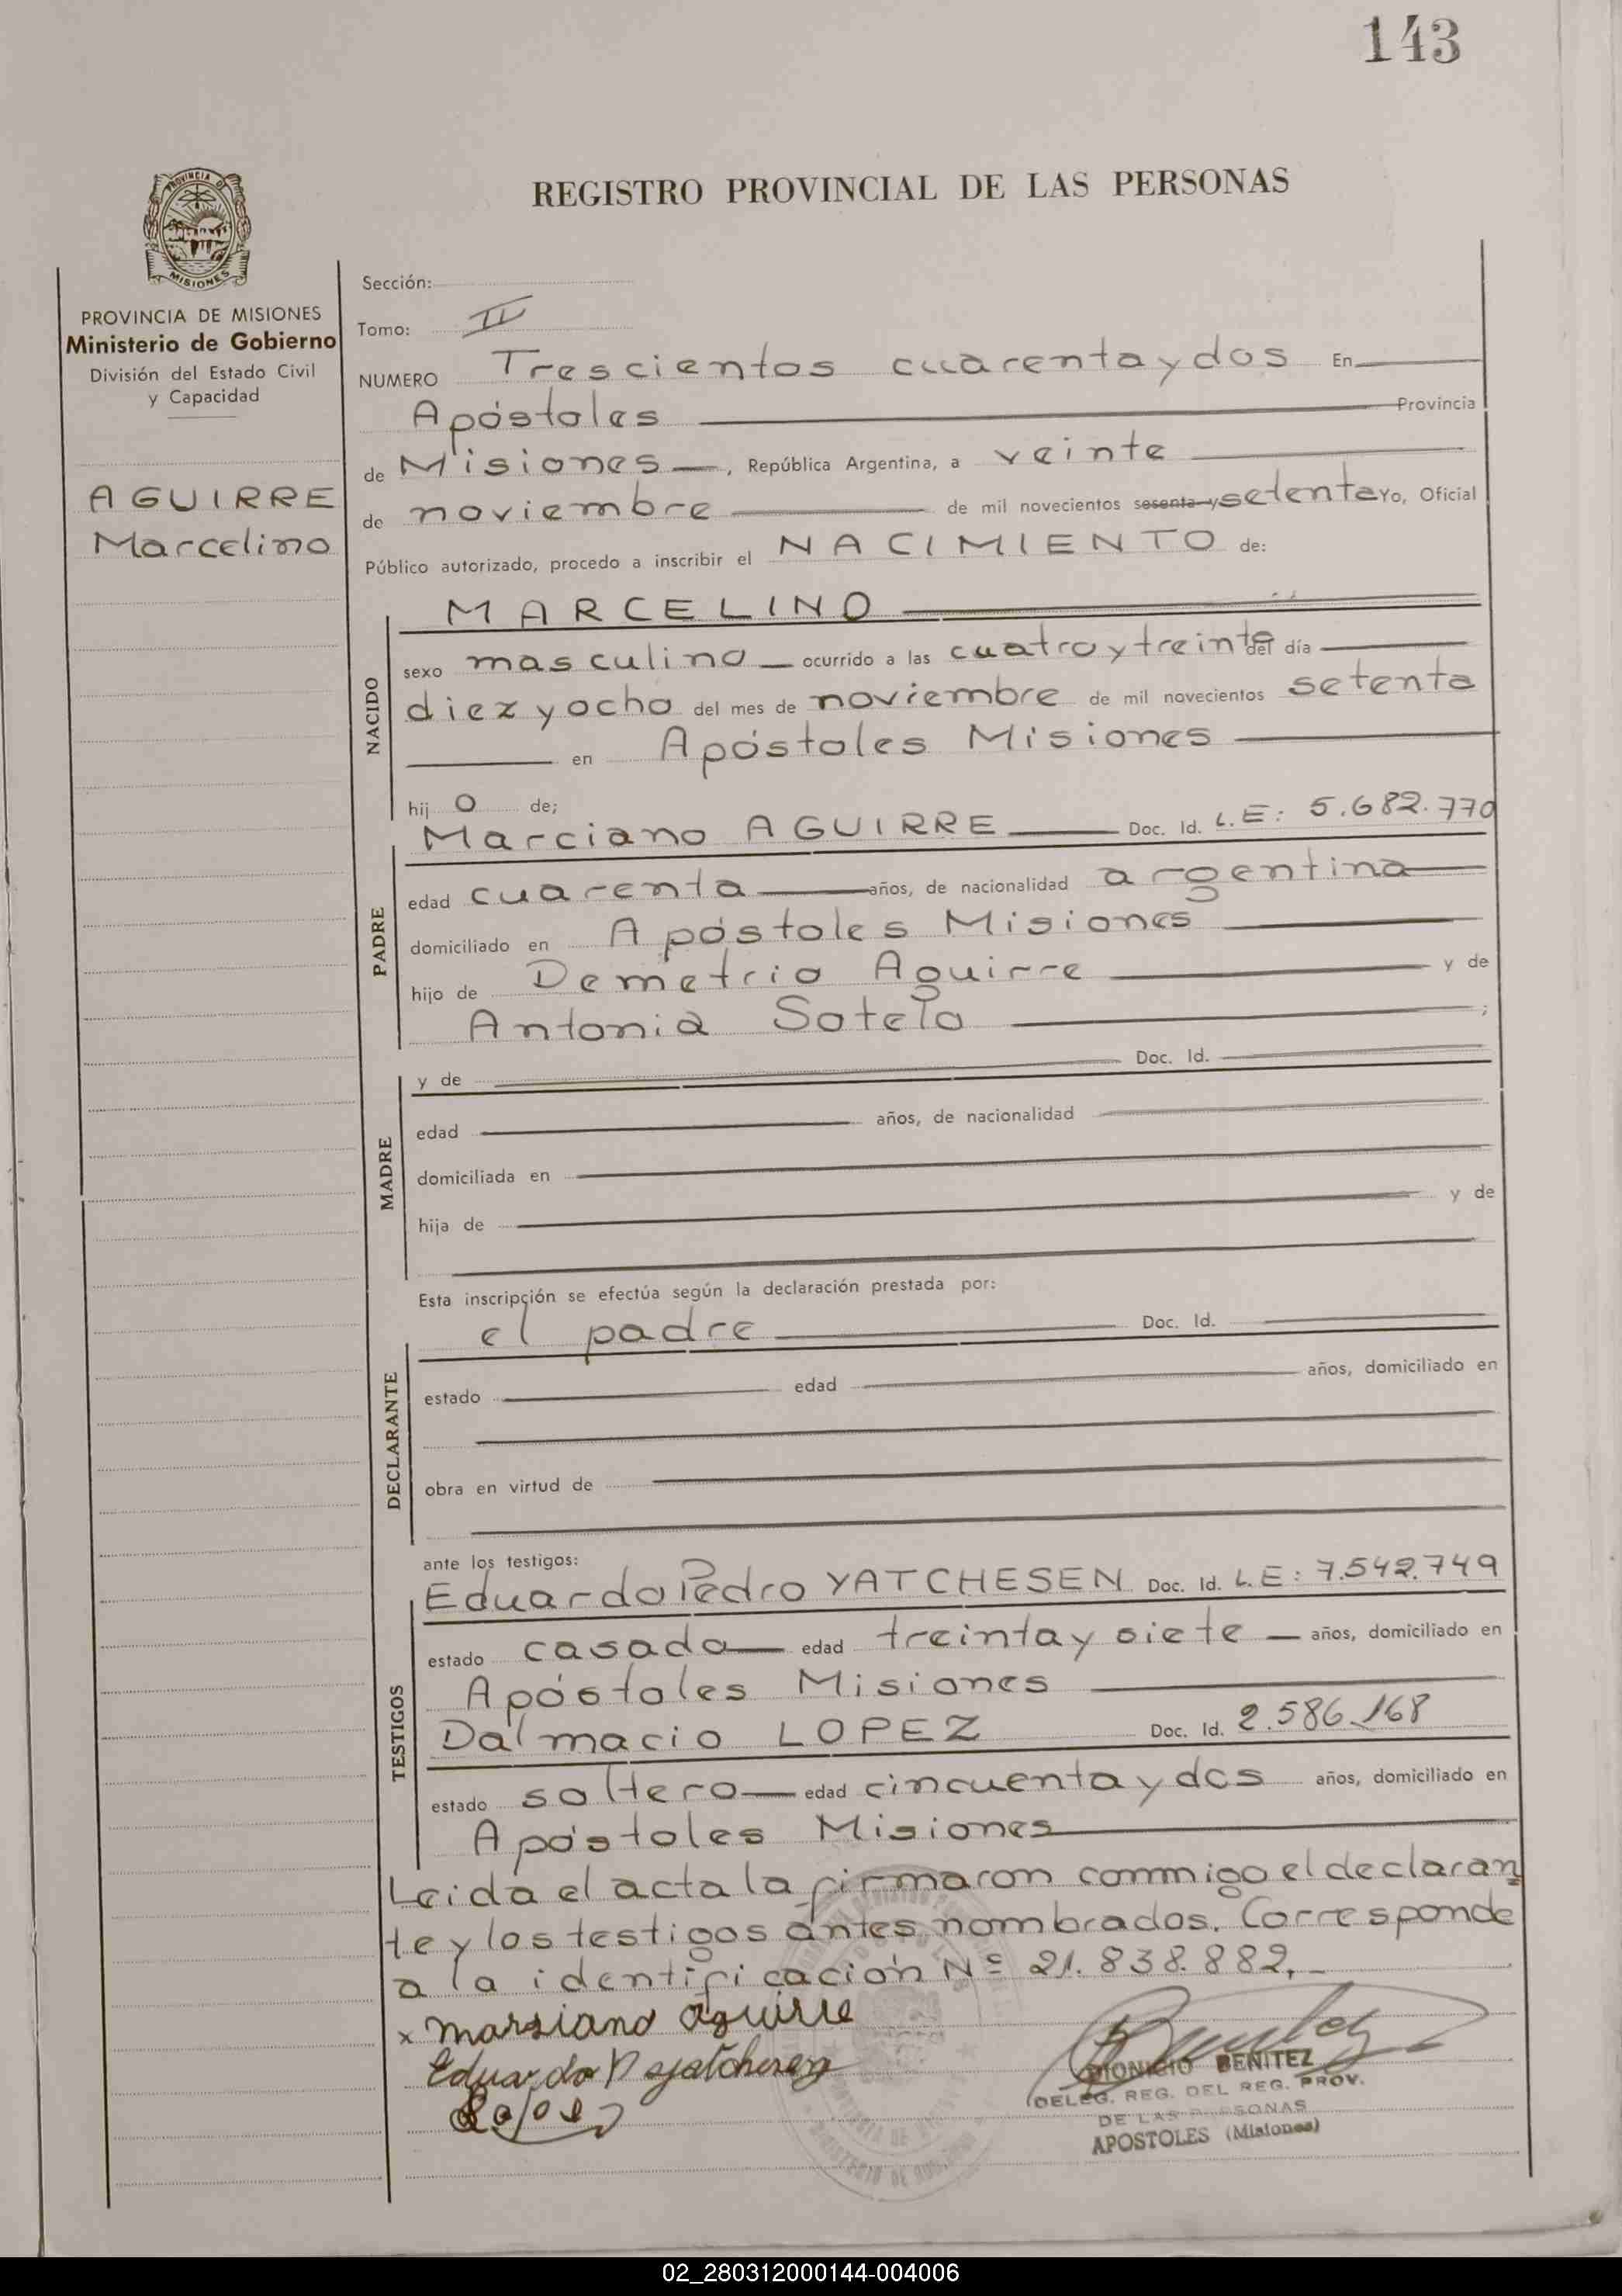 143
REGISTRO PROVINCIAL DE LAS PERSONAS
PROVINCIA DE
MISIONES
PROVINCIA DE MISIONES
Ministerio de Gobierno
División del Estado Civil
y Capacidad
AGUIRRE
Marcelino
Sección:
Tomo: II
NUMERO Trescientos cuarenta y dos En
Apóstoles Provincia
de Misiones, República Argentina, a veinte
de noviembre de mil novecientos sesenta y setenta Yo, Oficial
Público autorizado, procedo a inscribir el NACIMIENTO de:
NACIDO
MARCELINO
sexo masculino ocurrido a las cuatro y treinta del día
diez y ocho del mes de noviembre de mil novecientos setenta
en Apóstoles Misiones
hijo de;
PADRE
Marciano AGUIRRE Doc. Id. L.E: 5.682.770
edad cuarenta años, de nacionalidad argentina
domiciliado en Apóstoles Misiones
hijo de Demetrio Aguirre y de
Antonia Sotelo ;
MADRE
y de Doc. Id.
edad años, de nacionalidad
domiciliada en
hija de y de
Esta inscripción se efectúa según la declaración prestada por:
DECLARANTE
el padre Doc. Id.
estado edad años, domiciliado en
obra en virtud de
ante los testigos:
TESTIGOS
Eduardo Pedro YATCHESEN Doc. Id. L.E: 7.542.749
estado casado edad treinta y siete años, domiciliado en
Apóstoles Misiones
Dalmacio LOPEZ Doc. Id. 2.586.168
estado soltero edad cincuenta y dos años, domiciliado en
Apóstoles Misiones
Leida el acta la firmaron commigo el declaran
te y los testigos antes nombrados. Corresponde
a la identificación Nº 21.838.882.-
x marsiano aguirre
Eduardo P yatchesen
DIONICIO BENITEZ
DELEG. REG. DEL REG. PROV.
DE LAS PERSONAS
APOSTOLES (Misiones)
02_280312000144-004006